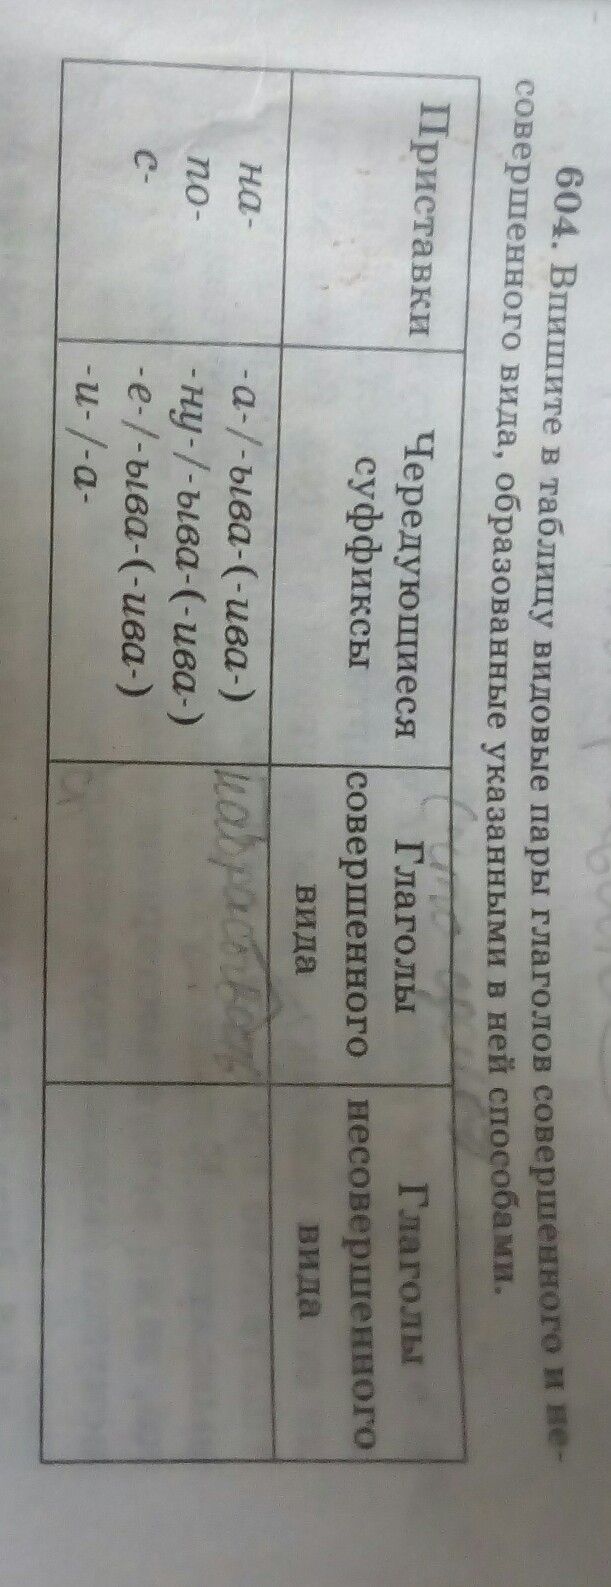 604. Впишите в таблицу видовые пары глаголов совершенного и не-
совершенного вида, образованные указанными в ней способами.
Приставки
Чередующиеся
суффиксы
Глаголы
совершенного
вида
Глаголы
несовершенного
вида
на-
по-
с-
-а-/-ыва-(-ива-)
-ну-/-ыва-(-ива-)
-е-/-ыва-(-ива-)
-и-/-а-